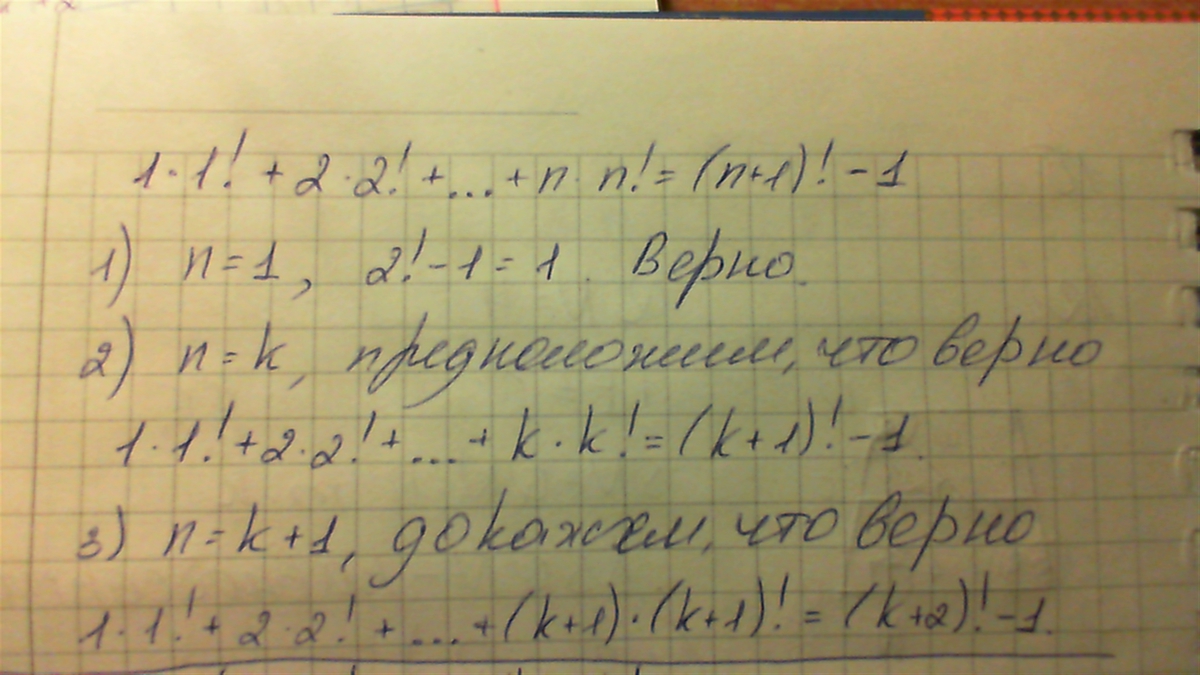 1·1! + 2·2! + ... + n·n! = (n+1)! - 1
1) n = 1, 2! - 1 = 1. Верно.
2) n = k, предположим, что верно
1·1! + 2·2! + ... + k·k! = (k+1)! - 1.
3) n = k+1, докажем, что верно
1·1! + 2·2! + ... + (k+1)·(k+1)! = (k+2)! - 1.